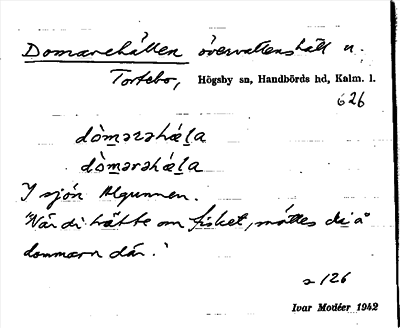 Domarehällen övervattenshäll n.
Tortebo, Högsby sn, Handbörds hd, Kalm. l.
626
dòmarəhǽla
dòmərəhǽla
I sjön Algunnen.
"När di trätte om fisket, möttes di å
dommarn där."
s 126
Ivar Modéer 1942